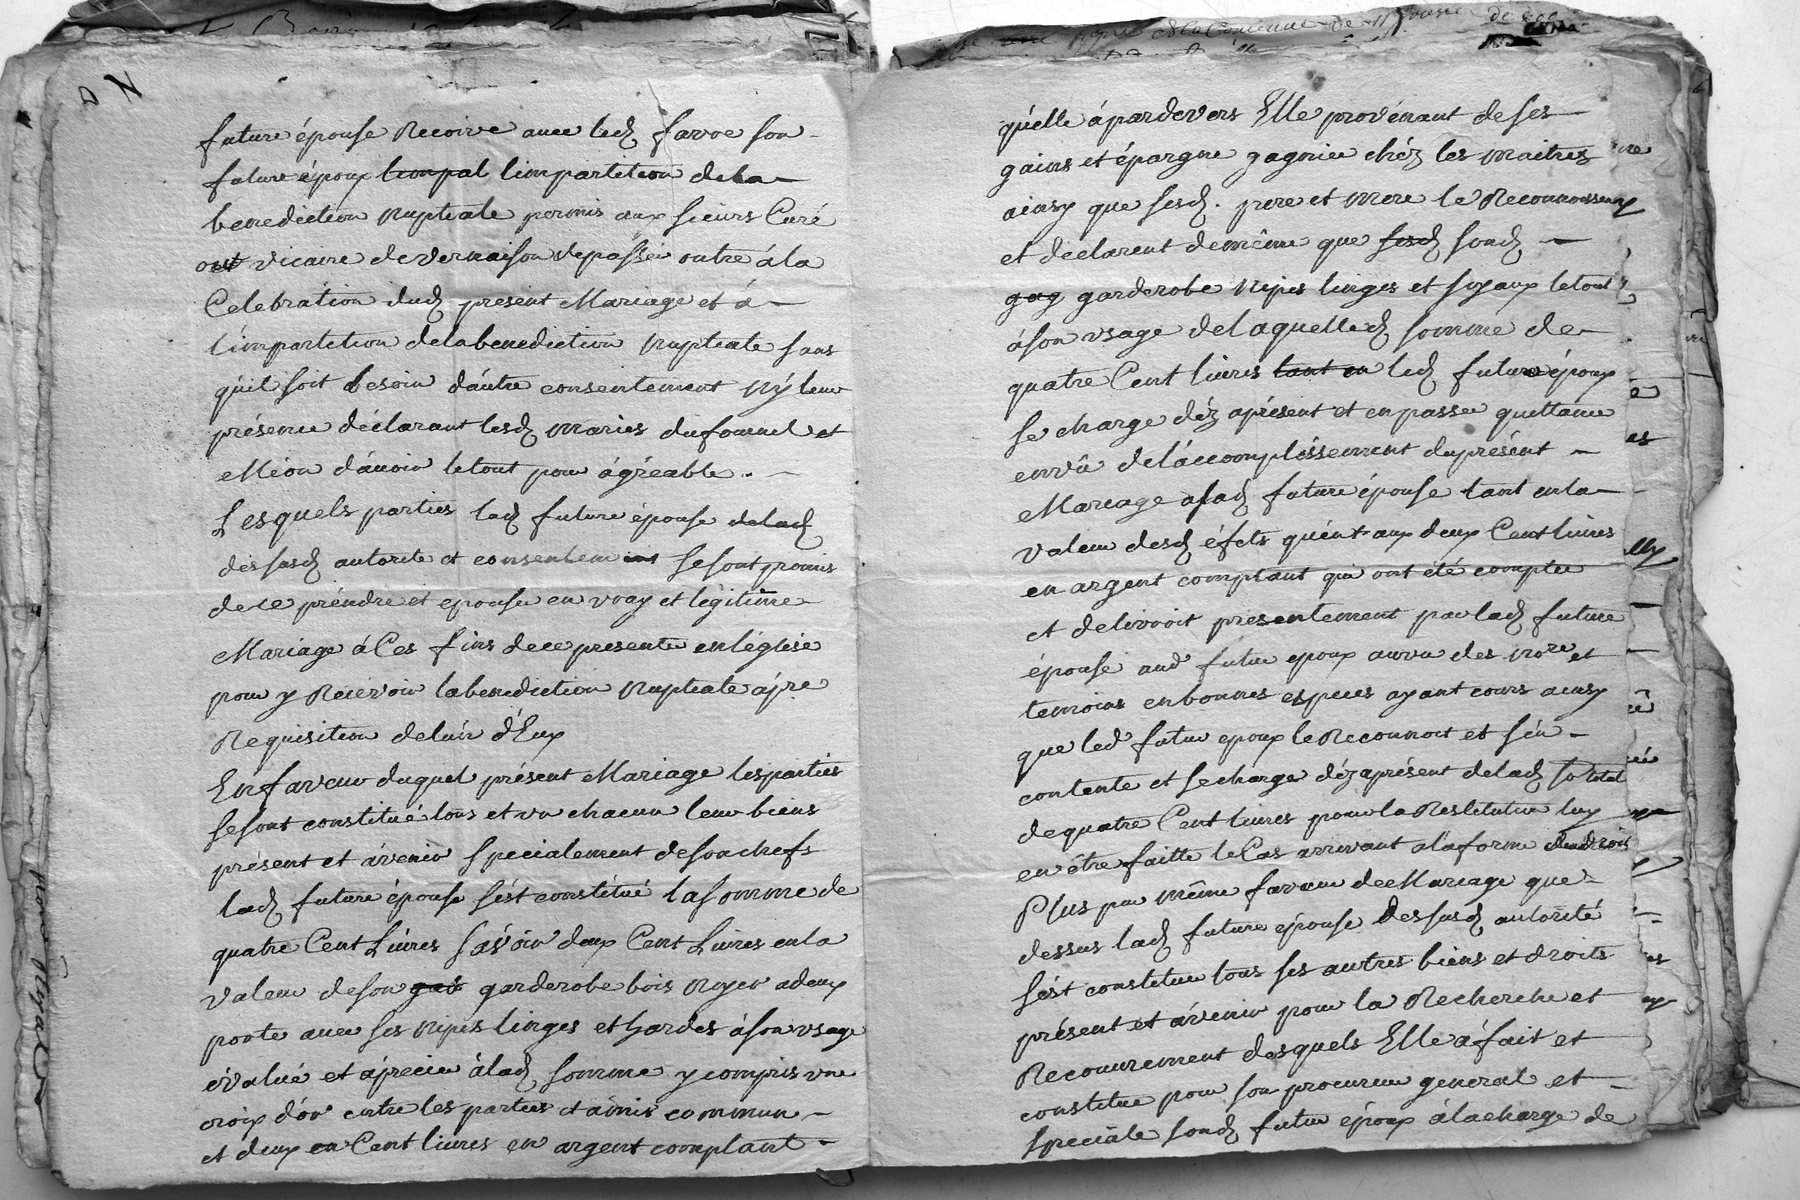 future épouse Recoive avec led. favre son
future époux l'impartition dela
benediction nuptiale permis aux sieurs Curé
out vicaire de vernaison depasser outre á la
Celebration dud. present Mariage et á
l'impartition delabenediction nuptiale sans
quil soit besoin d'autre consentement ny leur
présence déclarant lesd. mariés dufournel et
Méon d'avoir letout pour ágréable.
Lesquels parties lad. future épouse delad.
des susd. autorite et consentement sesont promis
dese préndre et epouser en vray et légitime
Mariage á Ces fins dese presenter en léglise
pour y Recevoir labenediction nuptiale ápre
Requisition delun d'Eux
En faveur duquel présent Mariage lesparties
sesont constitué tous et un chacun leur biens
présent et ávenir specialement deson chefs
lad. future épouse sést constitué lasomme de
quatre Cent Livres sávoir deux Cent Livres en la
valeur deson gar garderobe bois noyer adeux
porte avec ses nipes linges et hardes áson usage
évalué et áprécier álad. somme y compris une
croix d'or entre les parties et ámis commun
et deux en Cent livres en argent comptant
quélle ápardevers Elle provénant de ses
gains et épargne gagnée chéz les maitres
ainsy que sesd. pere et mere le Reconnoissent
et déclarent demême que sesd. sond.
gag garderobe nipes linges et joyaux letout
áson usage delaquelled. somme de
quatre Cent livres tant en led. future époux
se charge déz aprésent et en passe quittance
envû deláccomplissement duprésent
Mariage asad. future épouse tant en la
valeur desd. éfets quént aux deux Cent livres
en argent comptant qui ont été comptée
et delivroit presentement par lad. future
épouse aud. futur epoux auvu des nore. et
temoins en bonnes especes ayant cours ainsy
que led. futur epoux le Reconnoit et sén
contente et secharge dézaprésent delad. so. total
dequatre Cent livres pour la Restitution luy
en être faitte le Cas arrivant alaforme dudroit
Plus par même faveur de Mariage que
dessus lad. future épouse des susd. autorité
sést constituée tous ses autres biens et droits
présent et ávenir pour la Recherche et
Recouvrement desquels Elle á fait et
constitue pour son procureur general et
speciale sond. futur époux álacharge de